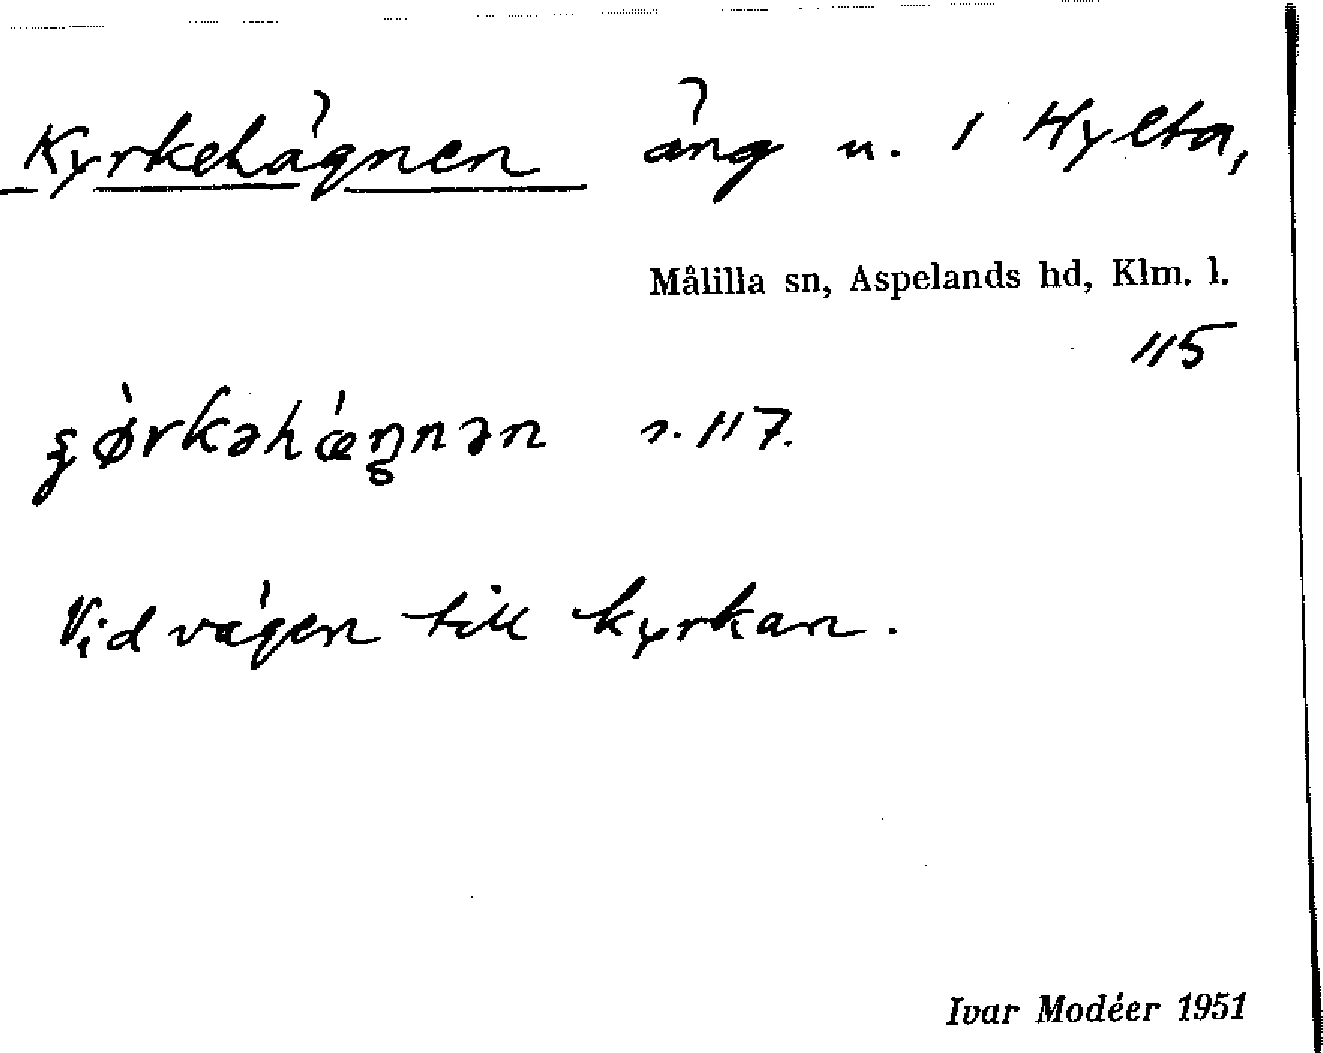 Kyrkehägnen äng u. 1 Hylta,
Målilla sn, Aspelands hd, Klm. l.
115
s. 117.
Vid vägen till kyrkan.
Ivar Modéer 1951